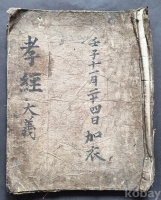 壬子十一月二十四日 加衣
孝經 大義
kobay